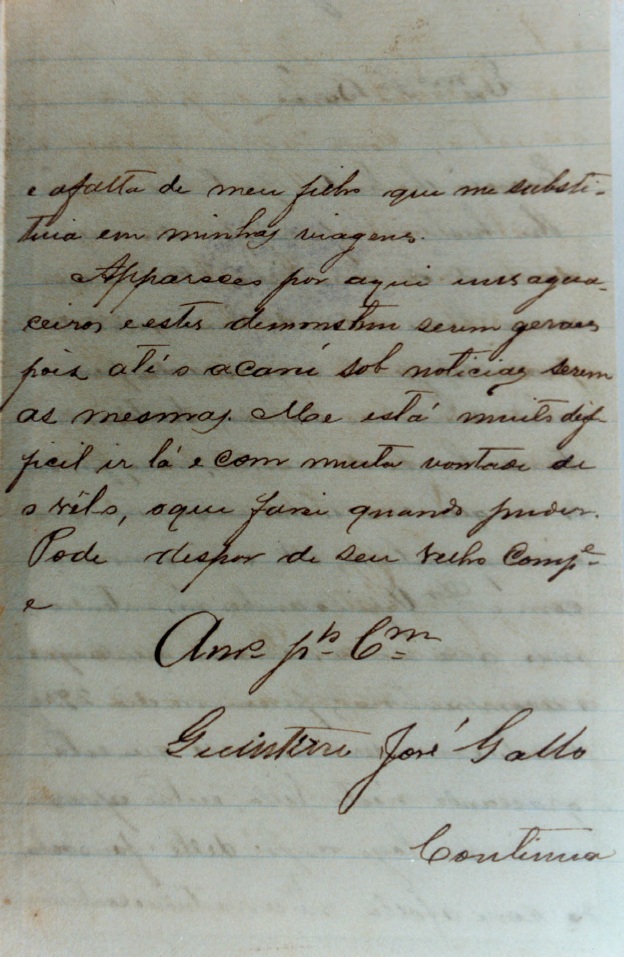 e afalta de meu filho que me substi-
tuia em minhas viagens.
Appareceo por aqui uns agua-
ceiros e estes demonstram serem geraes
pois até o acaru sob noticias serem
as mesmas. Me está muito dif-
ficil ir lá e com muita vontade de
o vêl-o, oque farei quando puder.
Pode dispor de seu velho Comp.e
e
Am.o p.a C.m
José Gallo
Continua